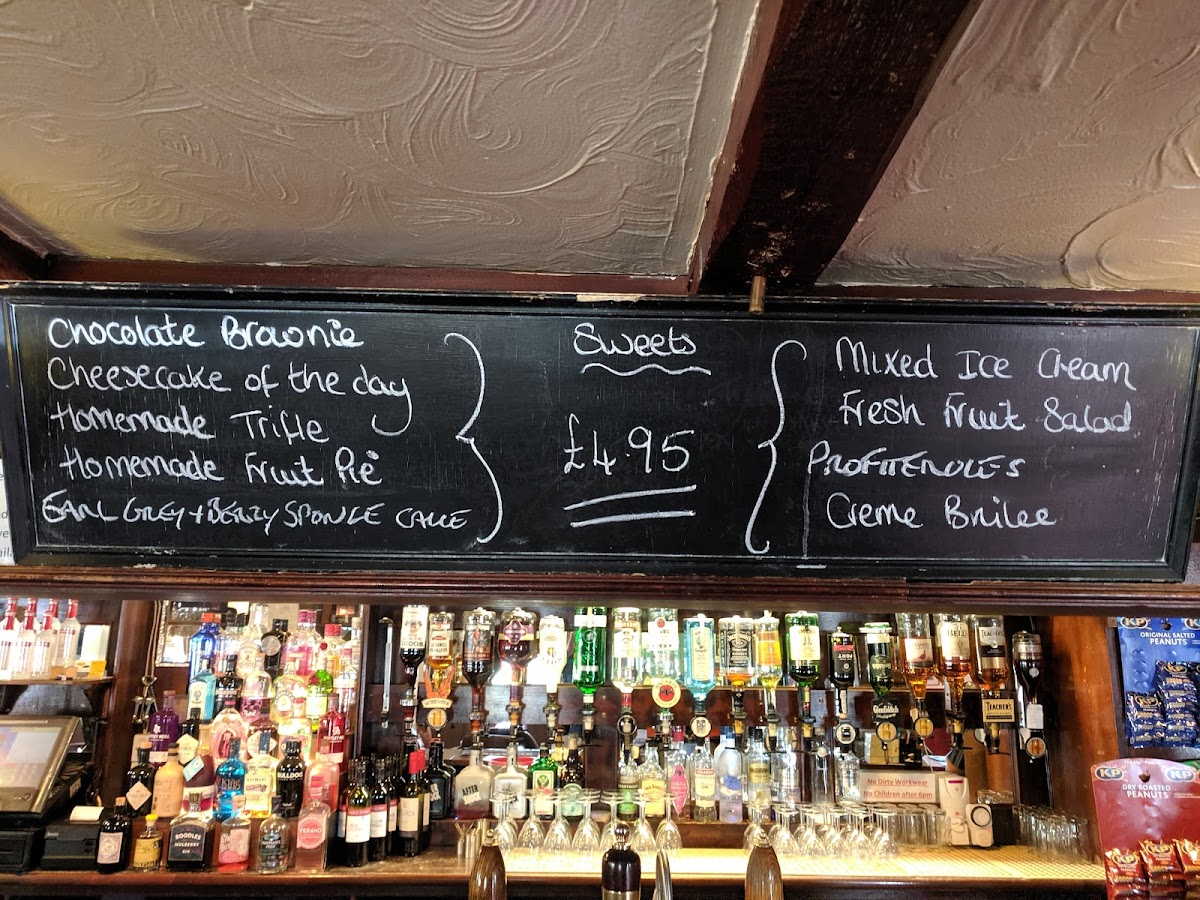 Chocolate Brownie
Cheesecake of the day
Homemade Trifle
Homemade Fruit Pie
EARL GREY + BERRY SPONGE CAKE
Sweets
£4.95
Mixed Ice Cream
Fresh Fruit Salad
PROFITEROLES
Creme Brulee
ORIGINAL SALTED
PEANUTS
TEACHER'S
No Dirty Workwear
No Children after 6pm
KP
KP
DRY ROASTED
PEANUTS
BULLDOG
BOODLES
MULBERRY
AFTER